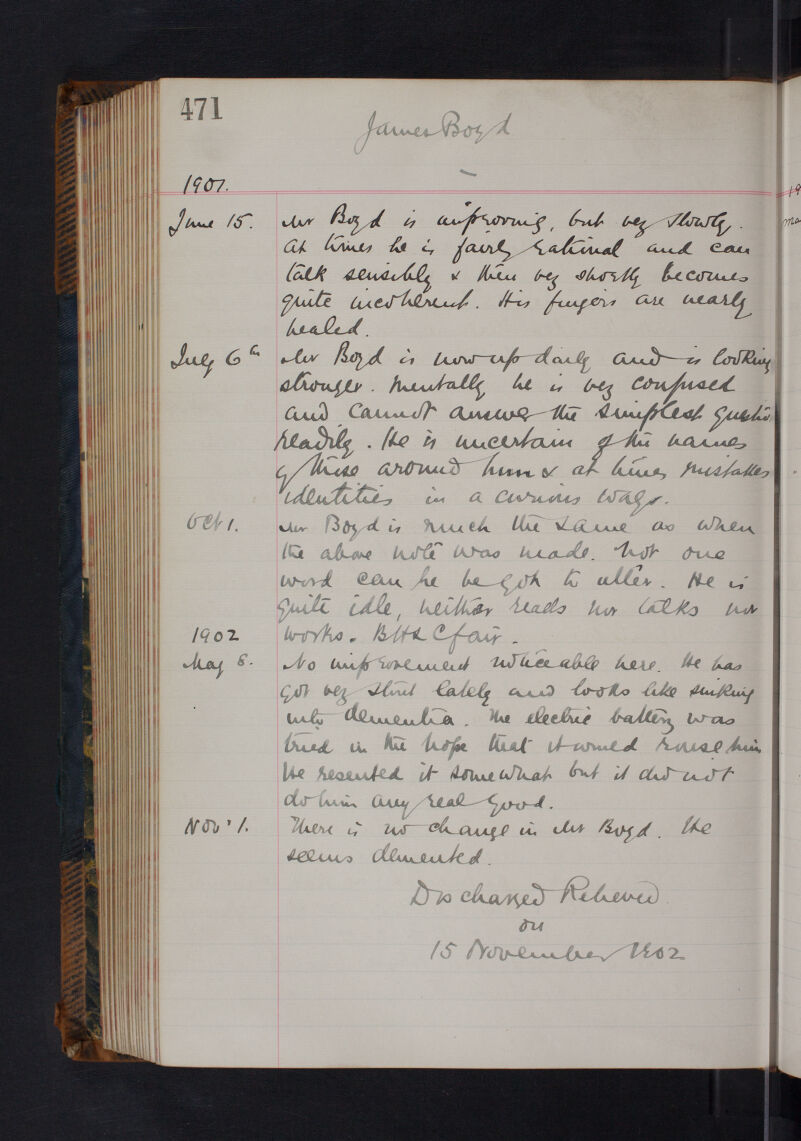 471
James Boyd
1901.
June 15. Mr Boyd is improving, but very slowly.
At times he is fairly rational and can
talk sensibly & then very shortly becomes
quite incoherent. His fingers are nearly
healed.
July 6th Mr Boyd is now up daily and is looking
stronger. Mentally he is very confused
and cannot answer the simplest questio
readily. He is uncertain of the names
of those around him & at times mistakes
identities in a curious way.
Oct 1. Mr Boyd is much the same as when
the above note was made. Not one
word can he be got to utter. He is
quite idle, neither reads nor talks nor
works. BH& C fair.
1902
May 8. No improvement noticeable here. He has
got very stout lately and looks like sinking
into dementia. The electric battery was
tried in the hope that it would rouse him
He resented it somewhat but it did not
do him any real good.
Nov' 1. There is no change in Mr Boyd. He
seems demented.
Discharged Relieved
on
15 November 1902
19
ma